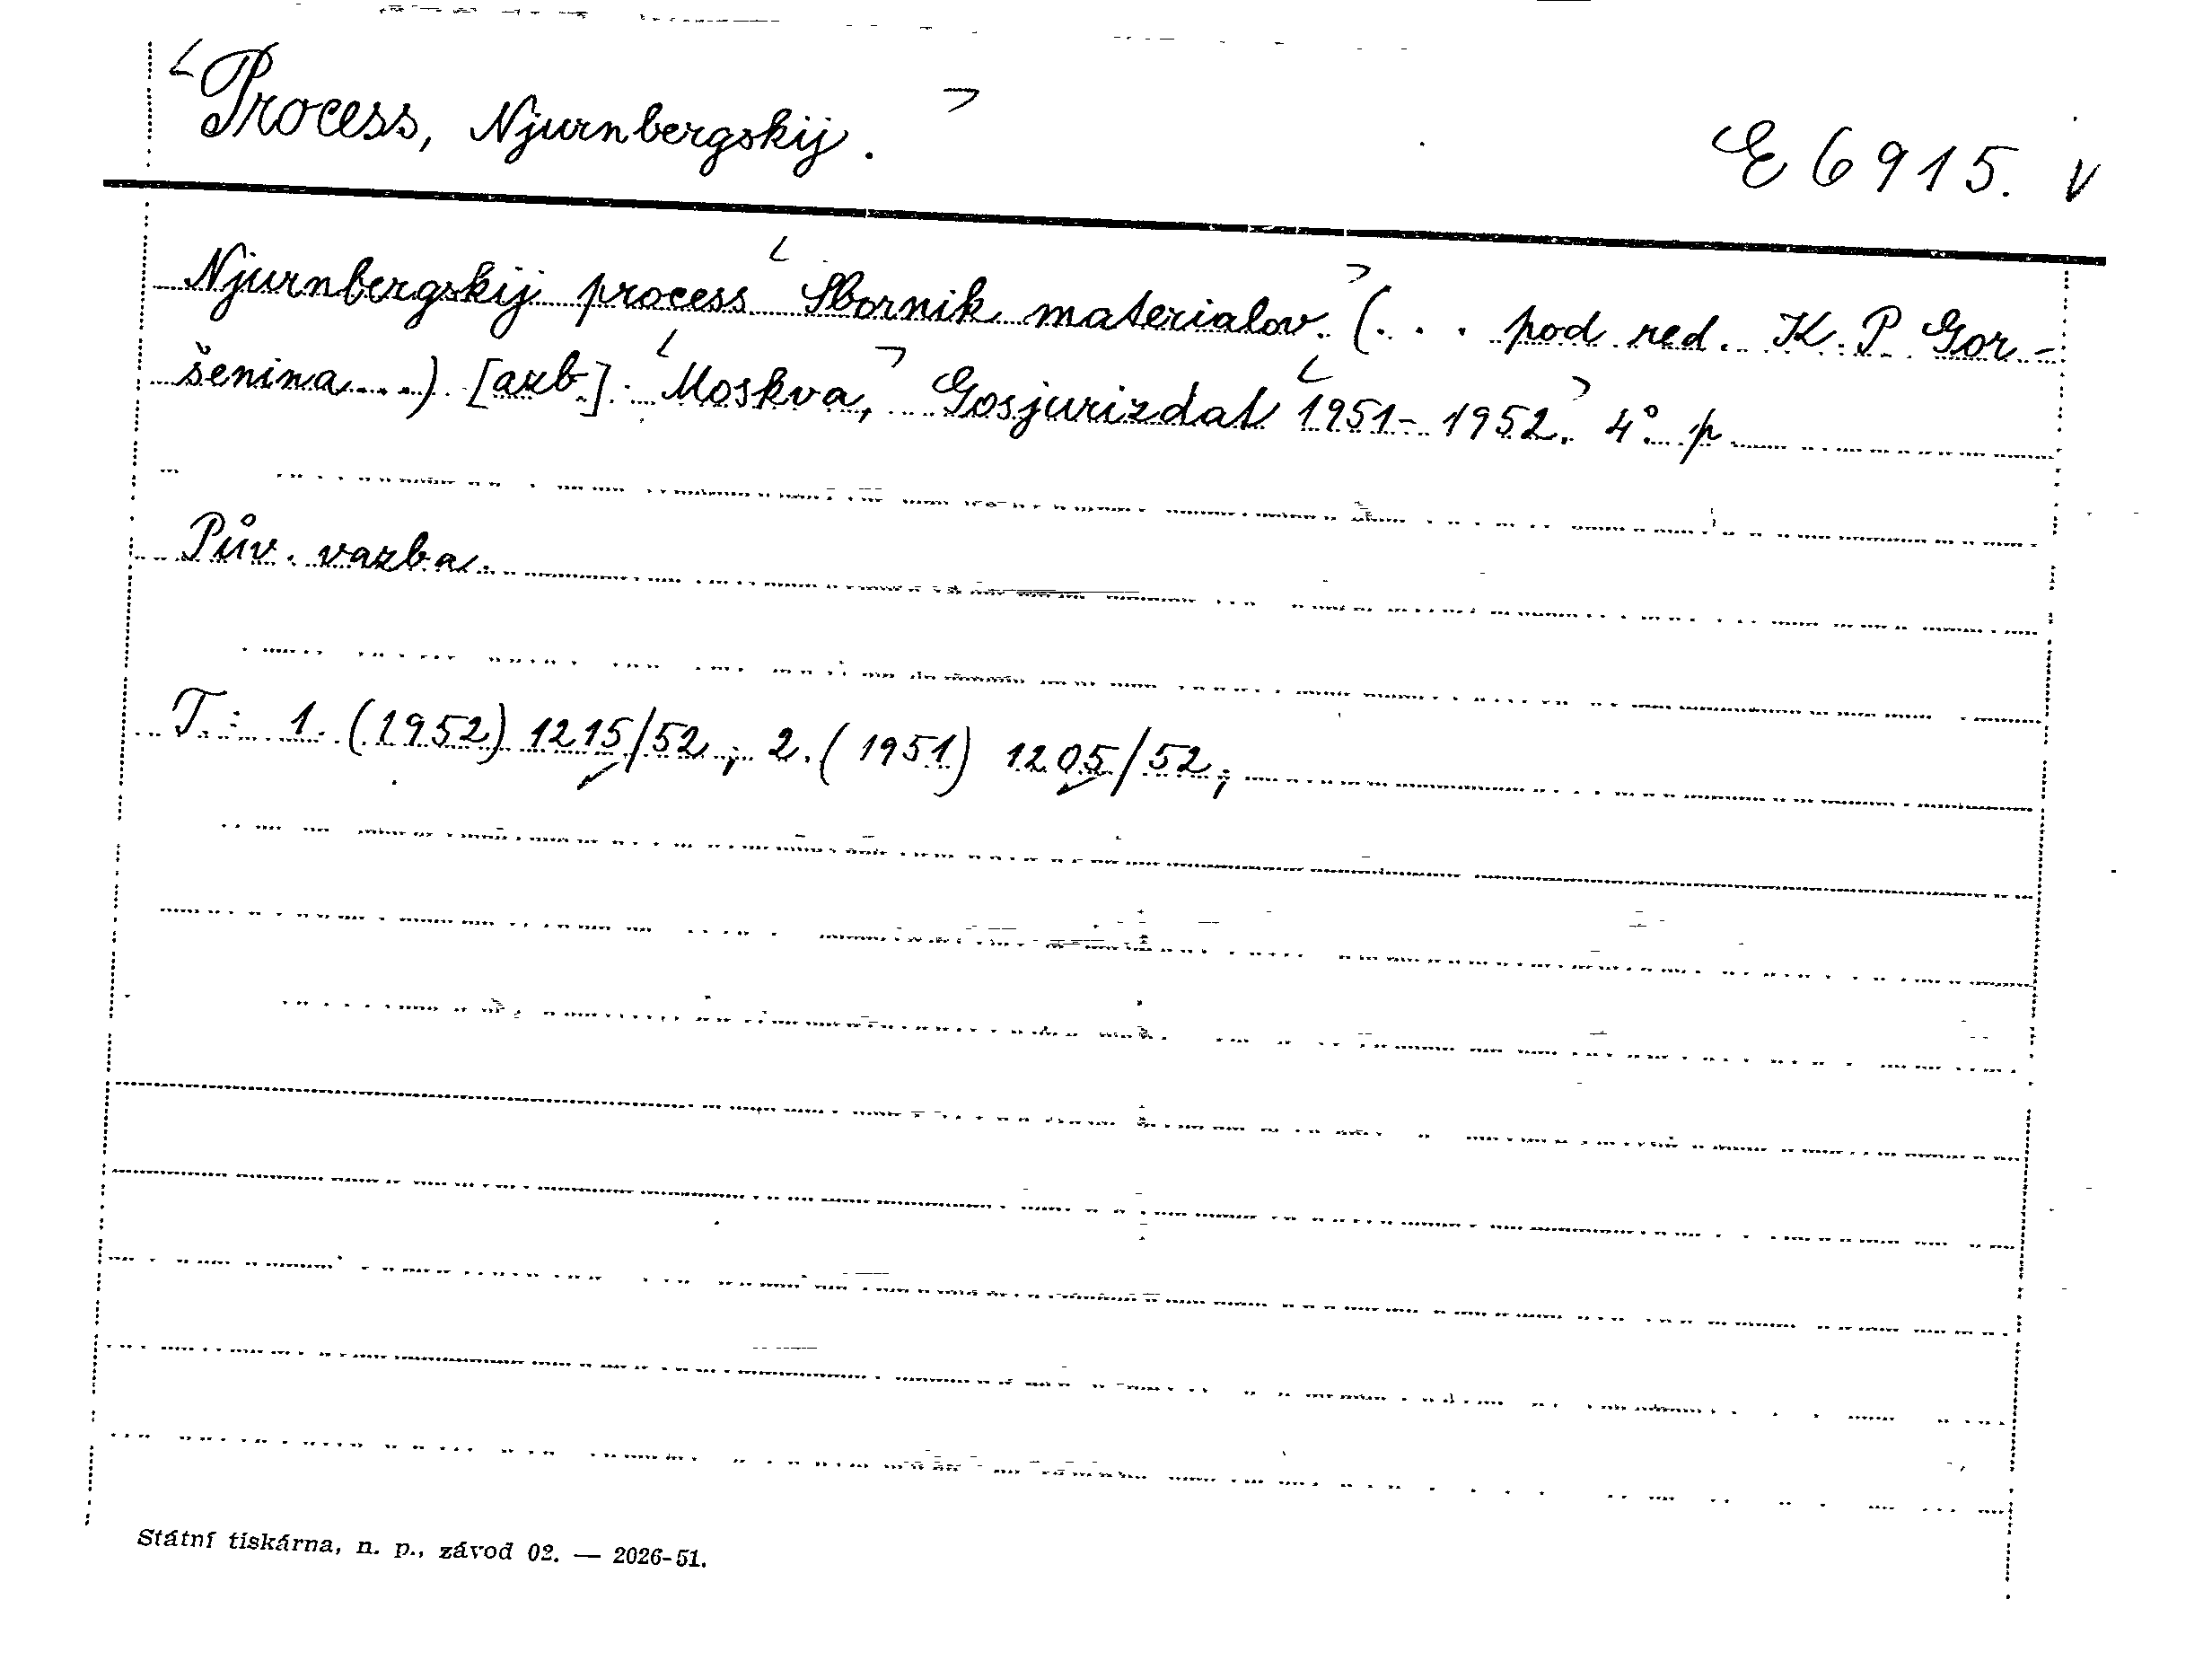 <Process, Njurnbergskij.> E 6915. v
Njurnbergskij process <Sbornik materialov.> (... pod red. K. P. Gor-
šenina...) [azb.]. <Moskva,> Gosjurizdat <1951-1952.> 4° p
Pův. vazba.
T.: 1. (1952) 1215/52; 2. (1951) 1205/52;
Státní tiskárna, n. p., závod 02. — 2026-51.